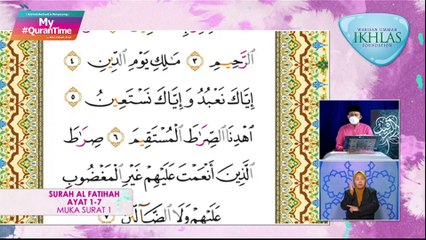 My
#QuranTime
WARISAN UMMAH
IKHLAS
FOUNDATION
ٱلرَّحِيمِ ٣ مَٰلِكِ يَوْمِ ٱلدِّينِ ٤
إِيَّاكَ نَعْبُدُ وَإِيَّاكَ نَسْتَعِينُ ٥
ٱهْدِنَا ٱلصِّرَٰطَ ٱلْمُسْتَقِيمَ ٦ صِرَٰطَ
ٱلَّذِينَ أَنْعَمْتَ عَلَيْهِمْ غَيْرِ ٱلْمَغْضُوبِ
عَلَيْهِمْ وَلَا ٱلضَّآلِّينَ ٧
SURAH AL FATIHAH
AYAT 1-7
MUKA SURAT 1